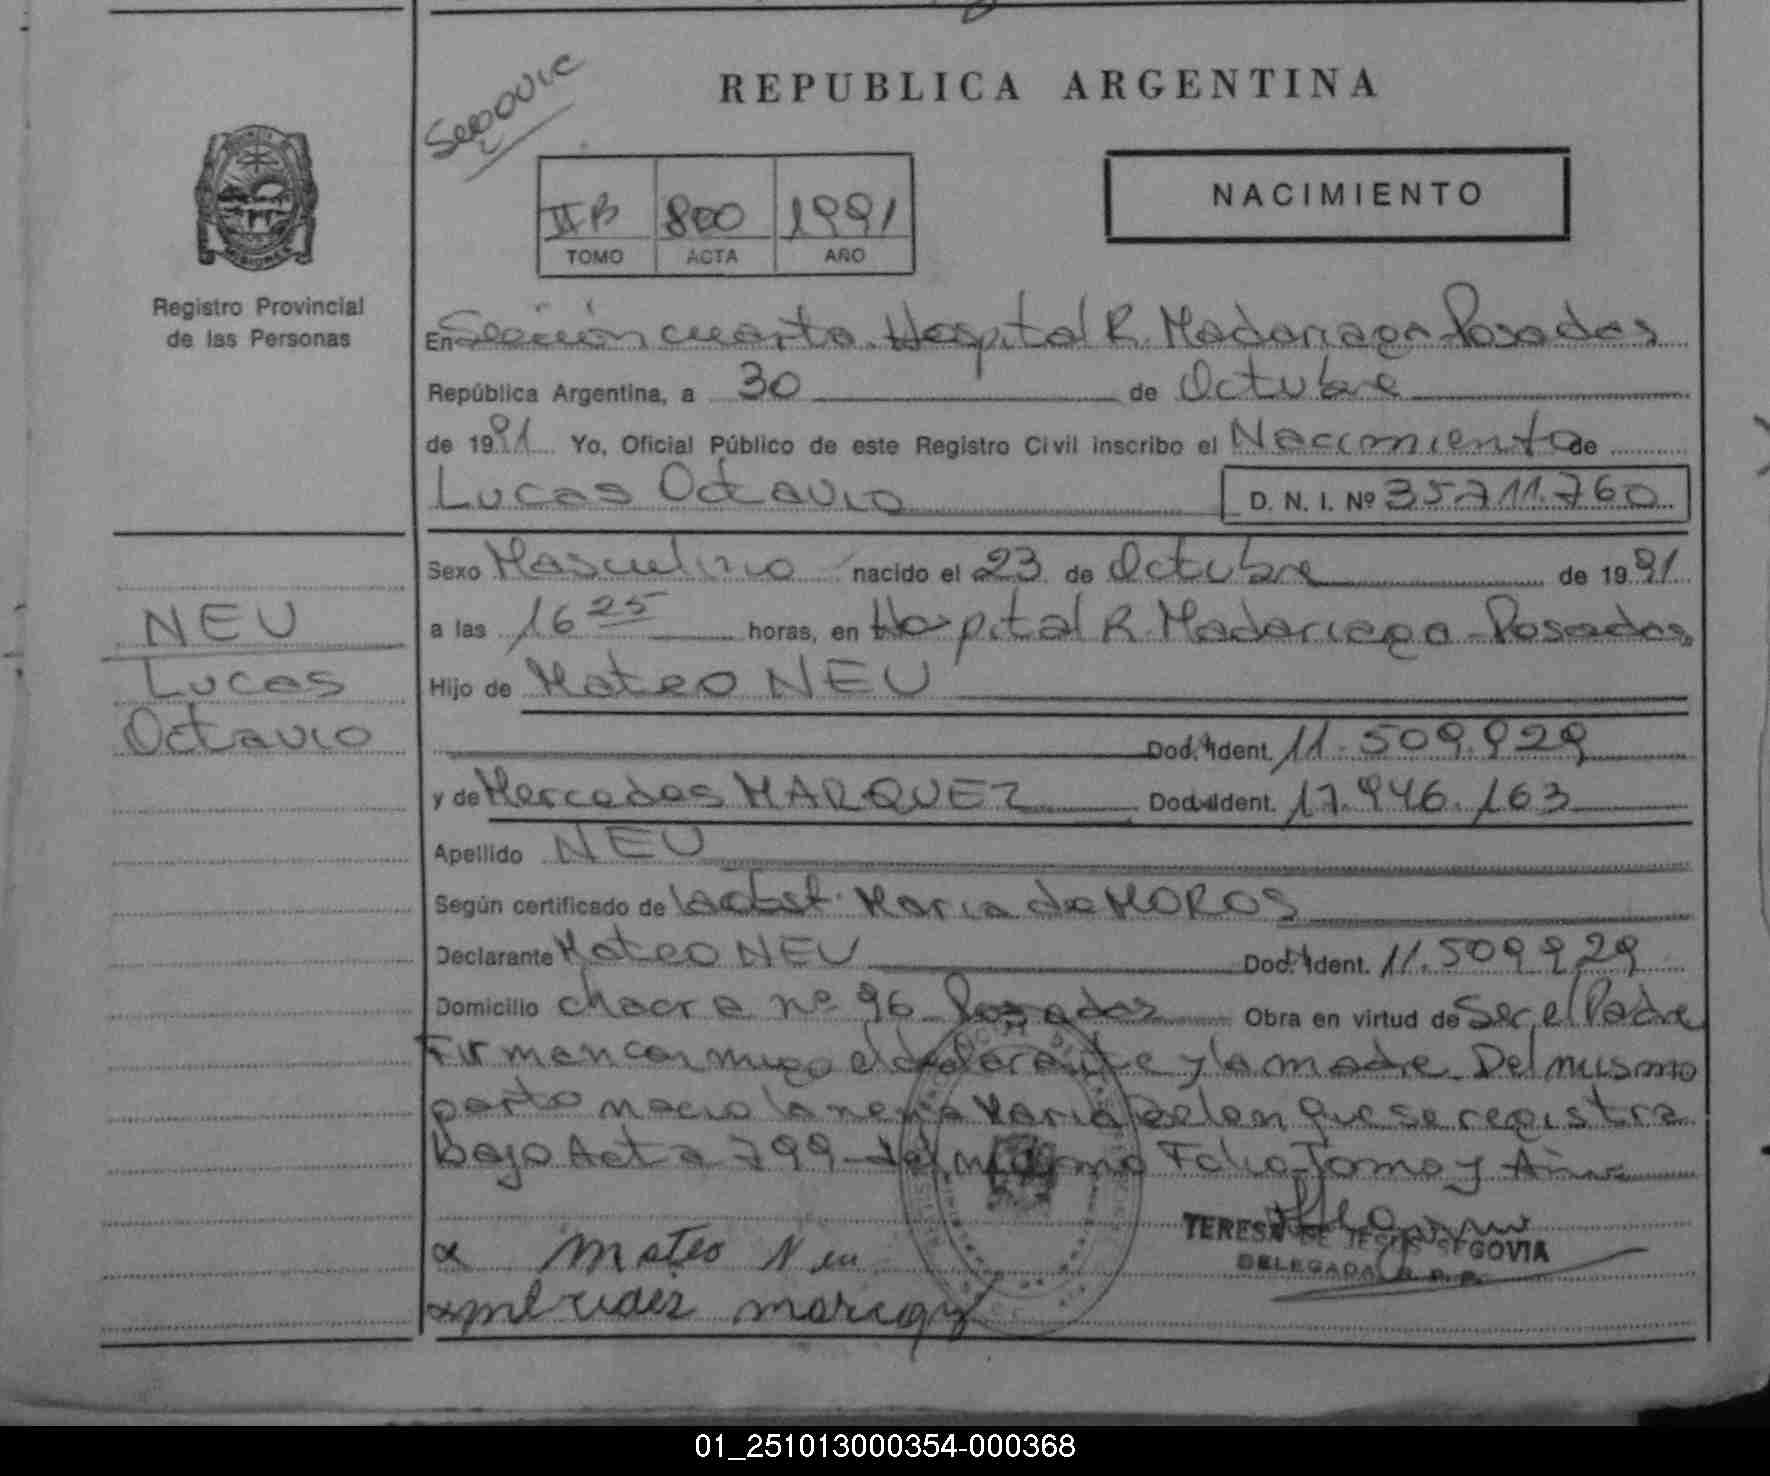 REPUBLICA ARGENTINA
NACIMIENTO
II B 800 1991
TOMO ACTA AÑO
Registro Provincial
de las Personas
En Sección cuarta Hospital R. Madariaga Posadas
República Argentina, a 30 de Octubre
de 1991 Yo, Oficial Público de este Registro Civil inscribo el Nacimiento de
Lucas Octavio D. N. I. Nº 35.711.760
Sexo Masculino nacido el 23 de Octubre de 1991
a las 16 25 horas, en Hospital R. Madariaga Posadas
Hijo de Mateo NEU
Doc. Ident. 11.509.929
y de Mercedes MARQUEZ Doc. Ident. 17.946.163
Apellido NEU
Según certificado de la Obst. Maria de MOROS
Declarante Mateo NEU Doc. Ident. 11.509929
Domicilio chacra nº 96 Posadas Obra en virtud de Ser el Padre
Firman conmigo el declarante y la madre. Del mismo
parto nacio la nena Maria Belen que se registra
bajo Acta 799 del mismo Folio Tomo y Año
NEU
Lucas
Octavio
TERESA DE JESUS SEGOVIA
DELEGADA R. P. P.
Mateo Neu
01_251013000354-000368